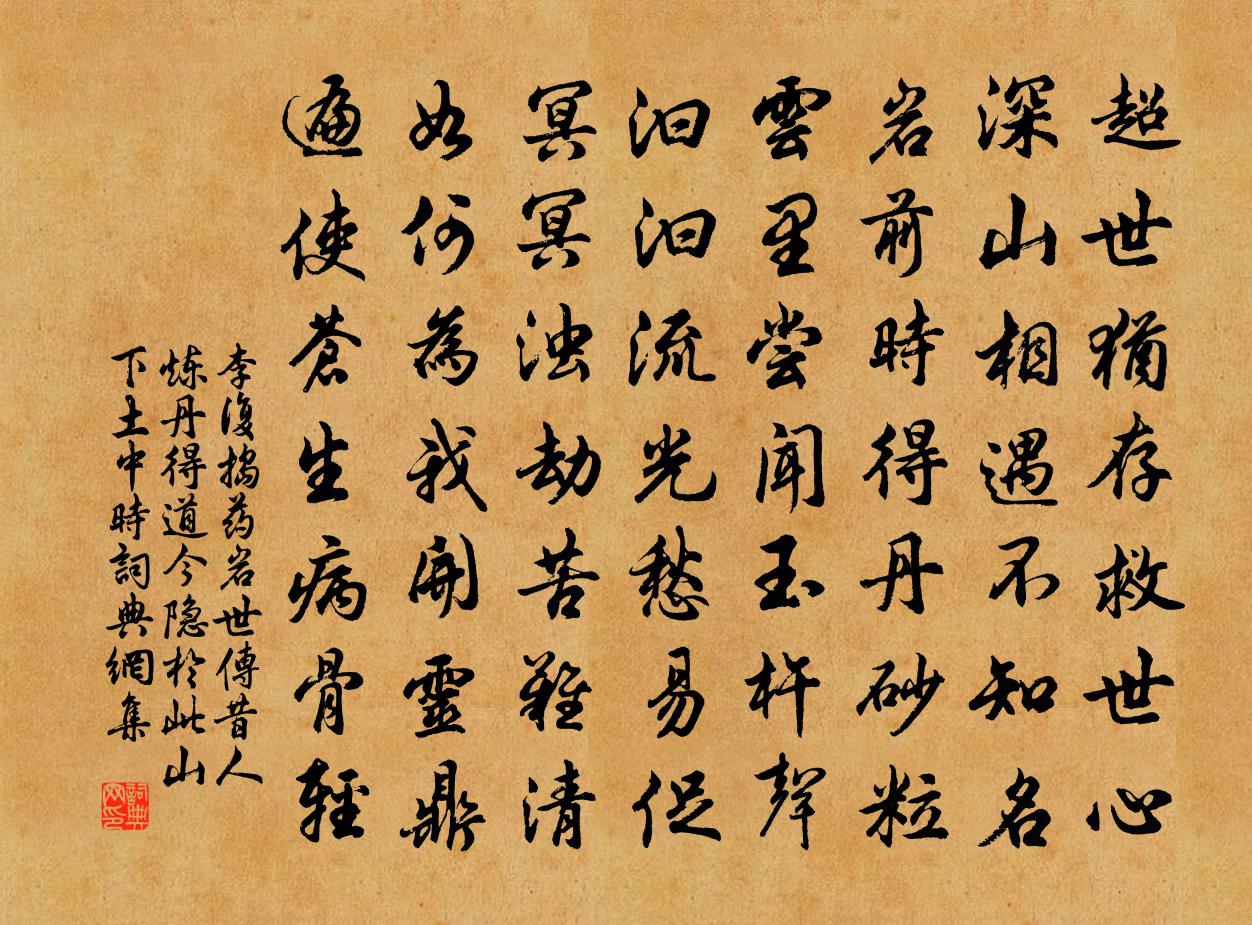 超世猶存救世心
深山相遇不知名
岩前時得丹砂粒
雲里尝聞玉杵聲
汩汩流光愁易促
冥冥浊劫苦難清
如何為我開靈鼎
遍使蒼生病骨輕
李復搗药岩世傳昔人
炼丹得道今隐於此山
下土中時詞典網集
詞典网印